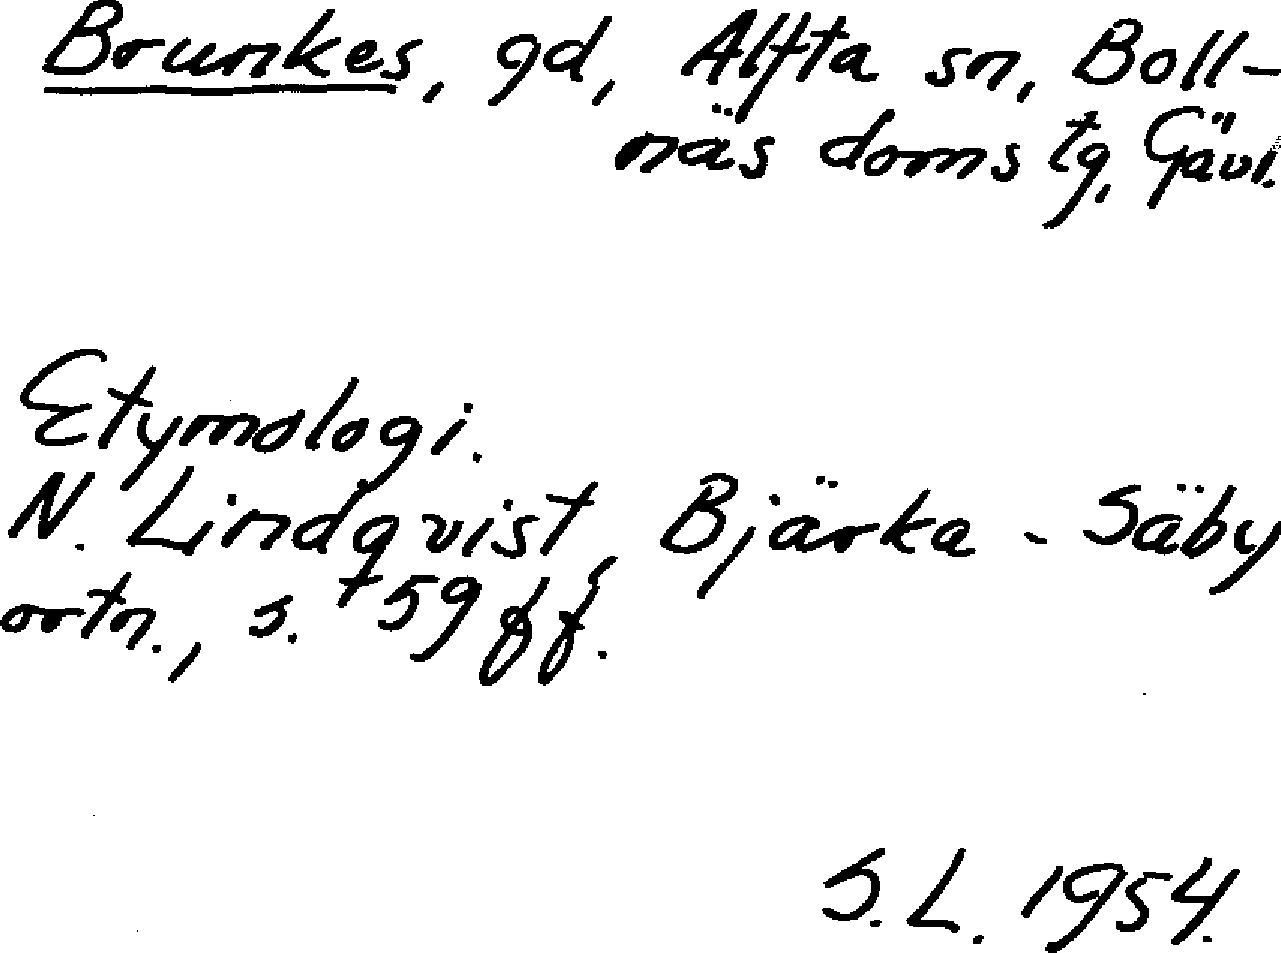 Brunkes, gd, Alfta sn, Boll-
näs doms tg, Gävl.
Etymologi.
N. Lindqvist, Bjärka-Säby
ortn., s. 159 ff.
S.L. 1954.